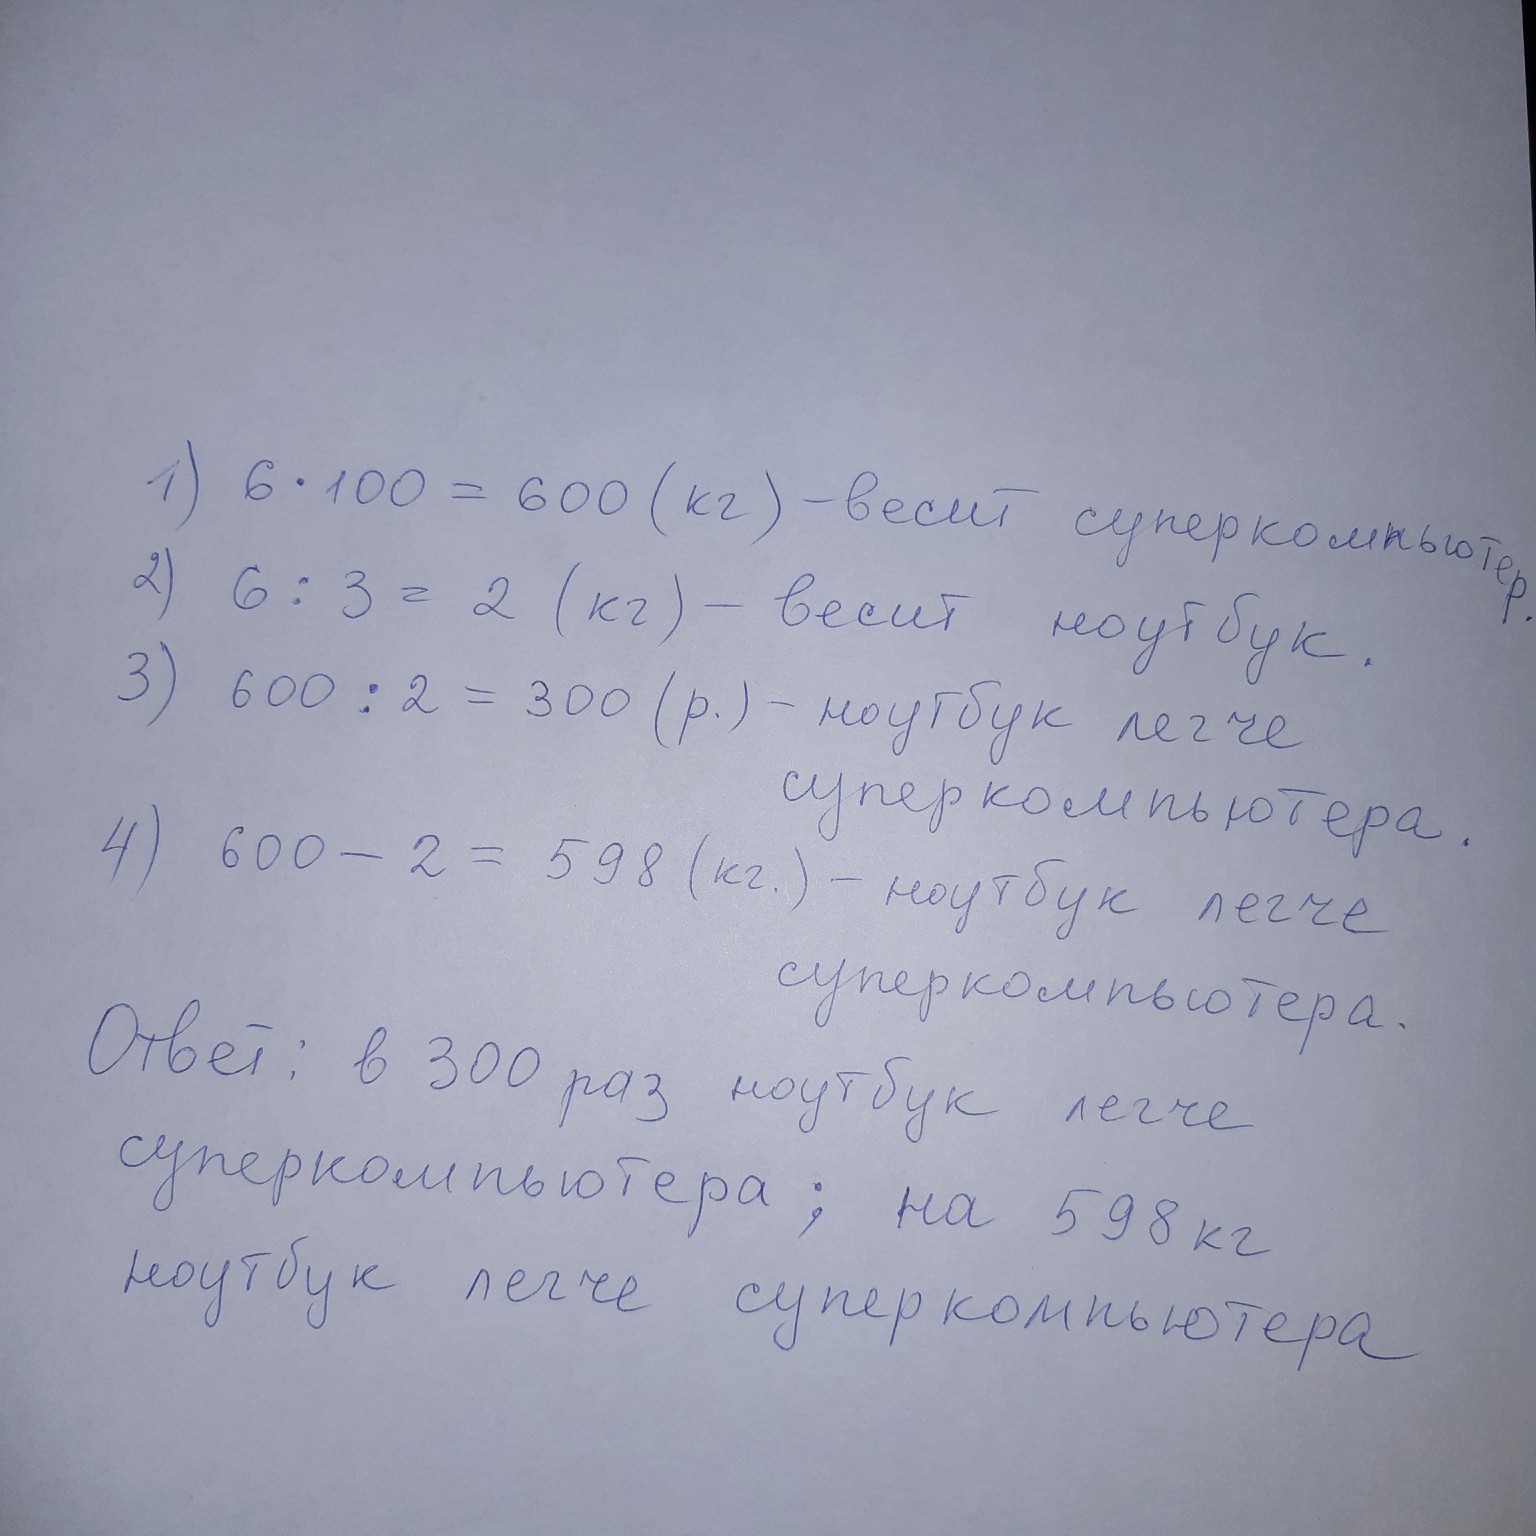 1) 6 · 100 = 600 (кг) – весит суперкомпьютер.
2) 6 : 3 = 2 (кг) – весит ноутбук.
3) 600 : 2 = 300 (р.) – ноутбук легче
суперкомпьютера.
4) 600 – 2 = 598 (кг.) – ноутбук легче
суперкомпьютера.
Ответ: в 300 раз ноутбук легче
суперкомпьютера; на 598 кг
ноутбук легче суперкомпьютера